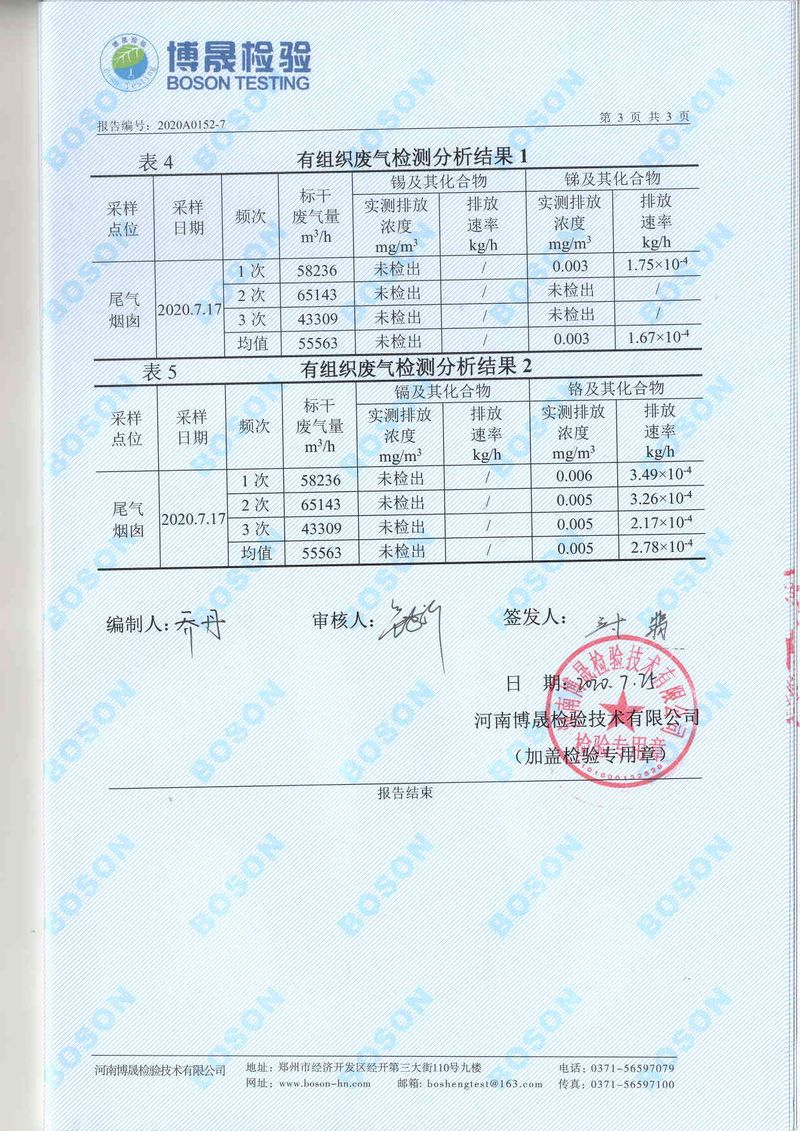 博晟检验
BOSON TESTING
报告编号：2020A0152-7
第 3 页 共 3 页
表 4 有组织废气检测分析结果 1
采样点位 采样日期 频次 标干废气量 m³/h 锡及其化合物 锑及其化合物
实测排放浓度 mg/m³ 排放速率 kg/h 实测排放浓度 mg/m³ 排放速率 kg/h
尾气烟囱 2020.7.17
1 次 58236 未检出 / 0.003 1.75×10⁻⁴
2 次 65143 未检出 / 未检出 /
3 次 43309 未检出 / 未检出 /
均值 55563 未检出 / 0.003 1.67×10⁻⁴
表 5 有组织废气检测分析结果 2
采样点位 采样日期 频次 标干废气量 m³/h 镉及其化合物 铬及其化合物
实测排放浓度 mg/m³ 排放速率 kg/h 实测排放浓度 mg/m³ 排放速率 kg/h
尾气烟囱 2020.7.17
1 次 58236 未检出 / 0.006 3.49×10⁻⁴
2 次 65143 未检出 / 0.005 3.26×10⁻⁴
3 次 43309 未检出 / 0.005 2.17×10⁻⁴
均值 55563 未检出 / 0.005 2.78×10⁻⁴
编制人：乔丹 审核人： 签发人：
日 期：2020.7.25
河南博晟检验技术有限公司
（加盖检验专用章）
河南博晟检验技术有限公司
检验专用章
报告结束
河南博晟检验技术有限公司
地址：郑州市经济开发区经开第三大街110号九楼 电话：0371-56597079
网址：www.boson-hn.com 邮箱：boshengtest@163.com 传真：0371-56597100
BOSON